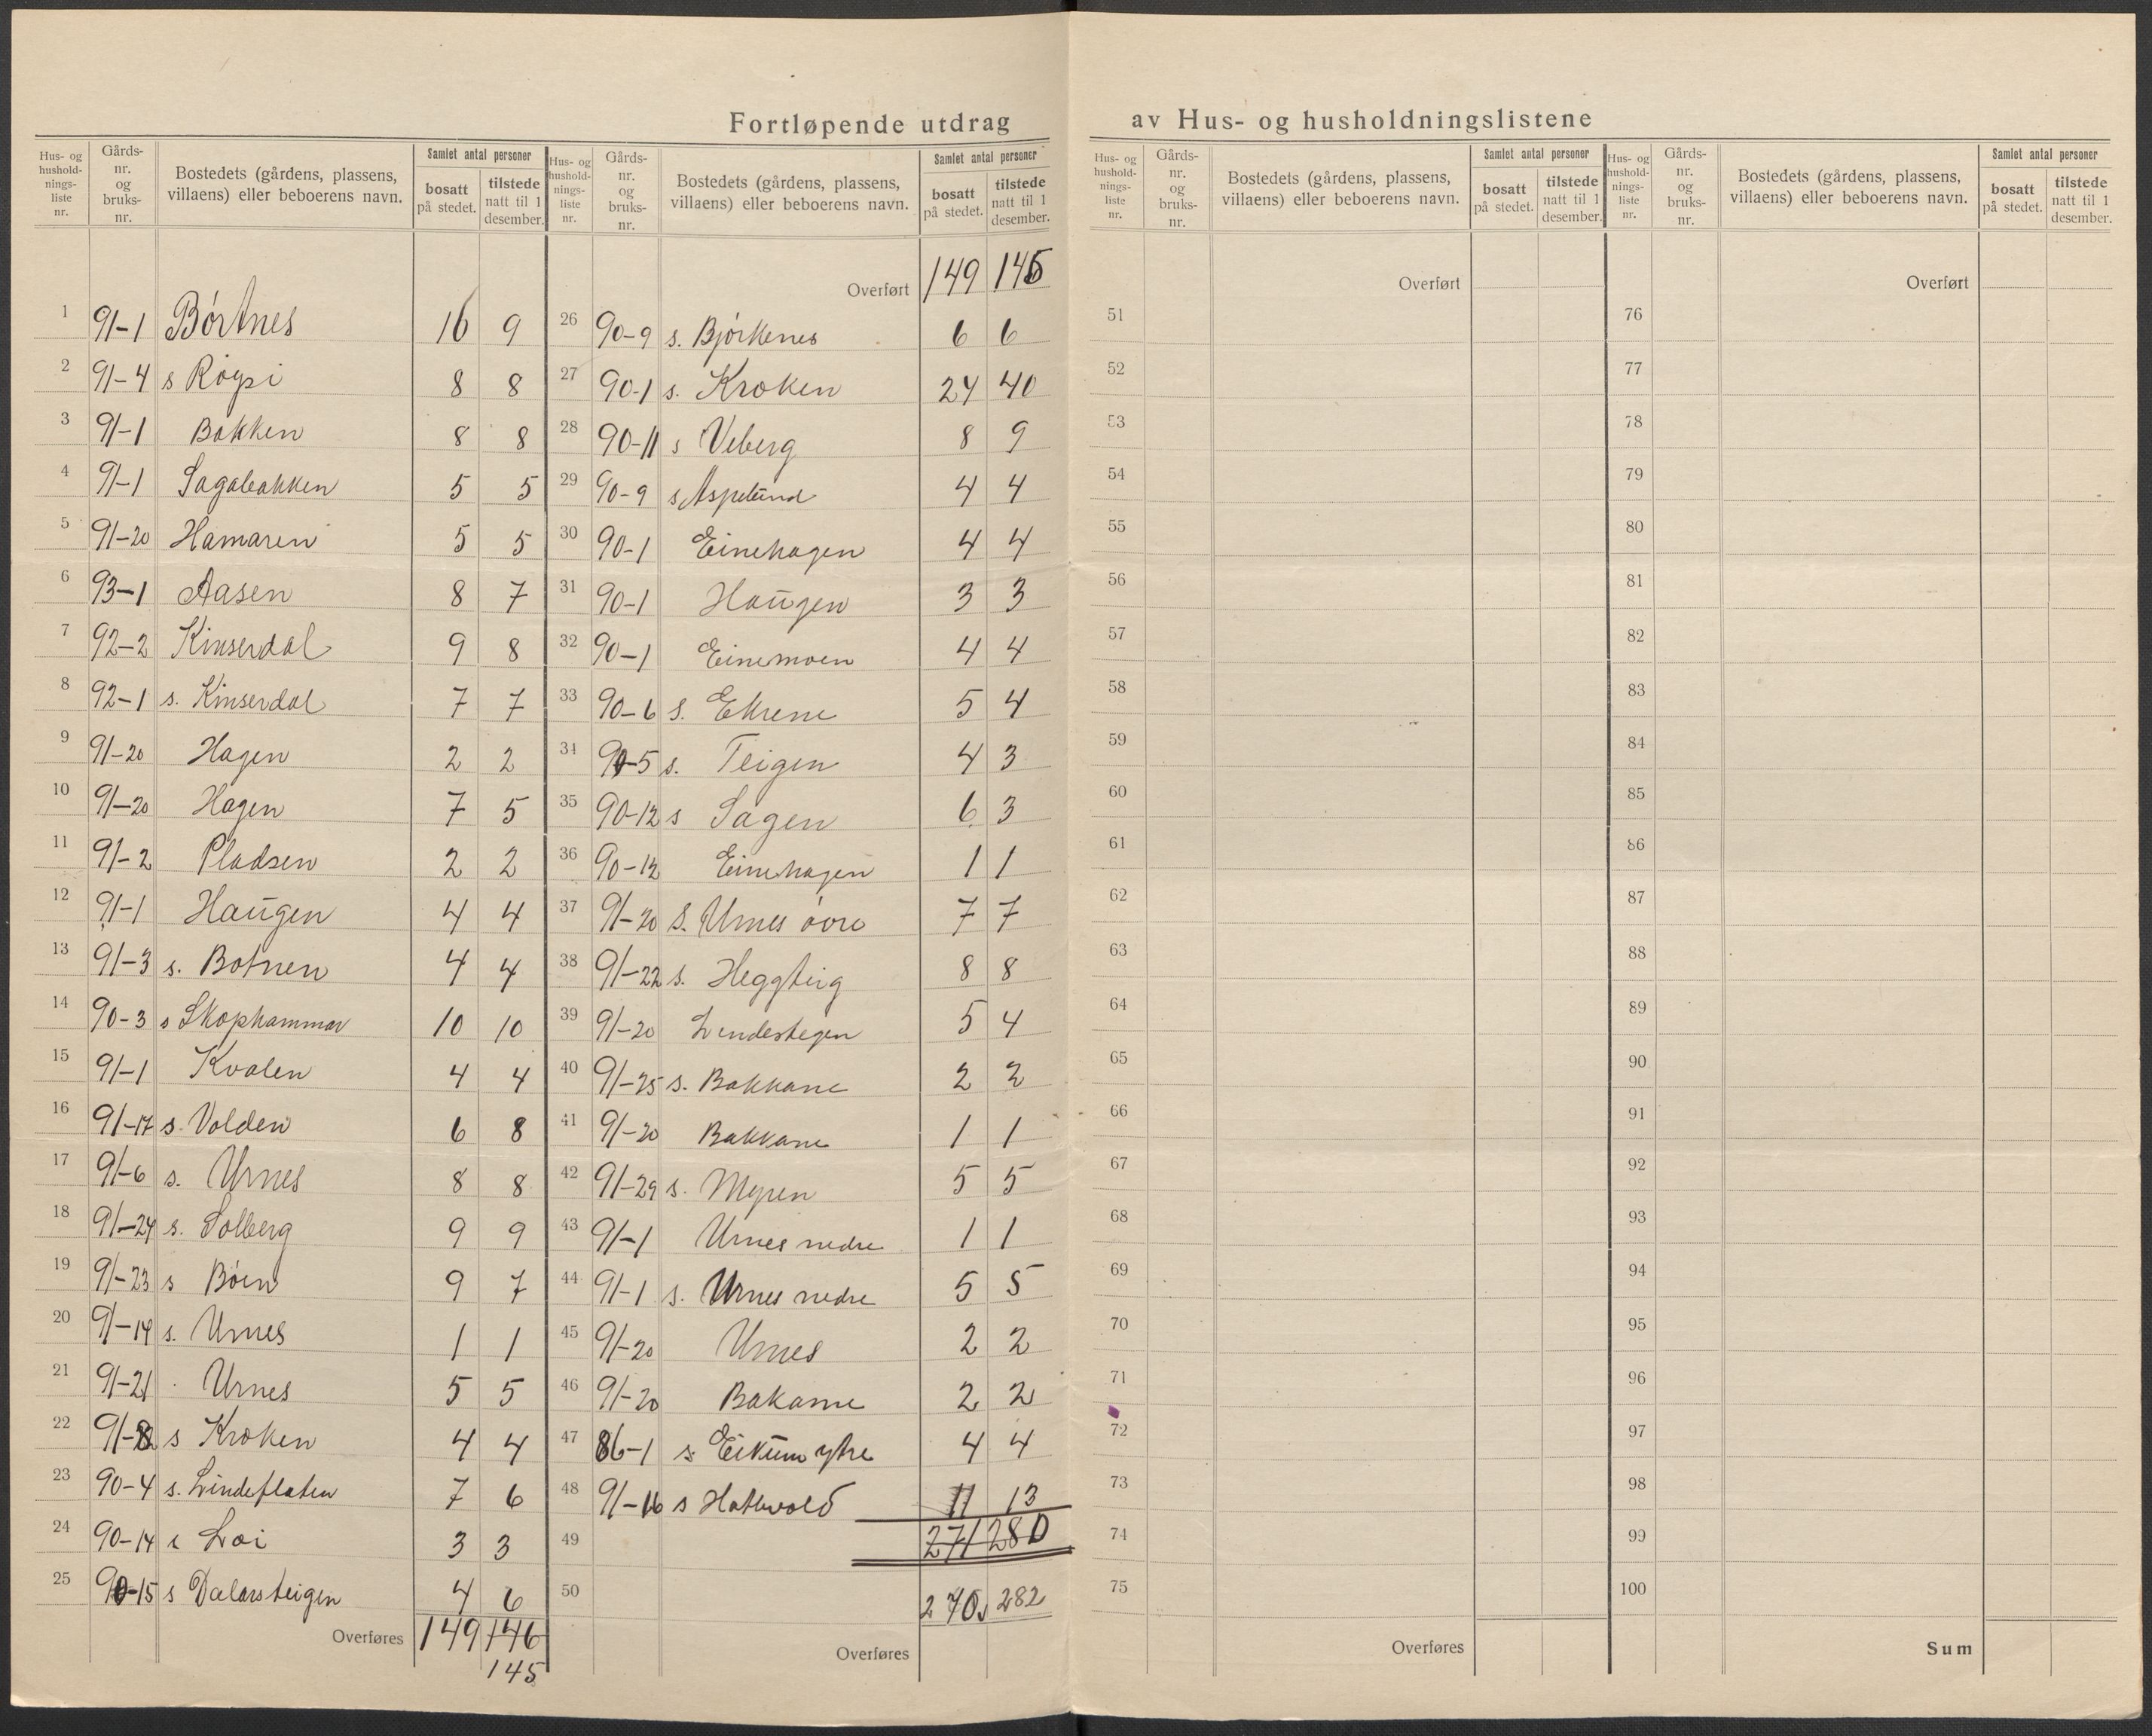 Fortløpende utdrag av Hus- og husholdningslistene
Hus- og hushold-nings-liste nr. Gårds-nr. og bruks-nr. Bostedets (gårdens, plassens, villaens) eller beboerens navn. Samlet antal personer bosatt på stedet. tilstede natt til 1 desember.
1 91-1 Børtnes 16 9
2 91-4 s Røysi 8 8
3 91-1 Bakken 8 8
4 91-1 Sagabakken 5 5
5 91-20 Hamaren 5 5
6 93-1 Aasen 8 7
7 92-2 Kinserdal 9 8
8 92-1 s. Kinserdal 7 7
9 91-20 Hagen 2 2
10 91-20 Hagen 7 5
11 91-2 Pladsen 2 2
12 91-1 Haugen 4 4
13 91-3 s. Botnen 4 4
14 90-3 s Skophammar 10 10
15 91-1 Kvalen 4 4
16 91-17 s. Volden 6 8
17 91-6 s. Urnes 8 8
18 91-24 s. Solberg 9 9
19 91-23 s Bøen 9 7
20 91-14 s. Urnes 1 1
21 91-21 Urnes 5 5
22 91-8 s Kroken 4 4
23 90-4 s. Lindeflaten 7 6
24 90-14 s Loi 3 3
25 90-15 s Dalarsteigen 4 6
Overføres 149 146
145
Hus- og hushold-nings-liste nr. Gårds-nr. og bruks-nr. Bostedets (gårdens, plassens, villaens) eller beboerens navn. Samlet antal personer bosatt på stedet. tilstede natt til 1 desember.
Overført 149 145
26 90-9 s. Bjørkenes 6 6
27 90-1 s. Kroken 24 40
28 90-11 s Veberg 8 9
29 90-9 s Aspelund 4 4
30 90-1 Einehagen 4 4
31 90-1 Haugen 3 3
32 90-1 Einemoen 4 4
33 90-6 s. Ekrene 5 4
34 90-5 s. Teigen 4 3
35 90-12 s Sagen 6 3
36 90-12 Einehagen 1 1
37 91-20 s. Urnes øvre 7 7
38 91-22 s. Heggteig 8 8
39 91-20 Lindestegen 5 4
40 91-25 s. Bakkane 2 2
41 91-20 Bakkane 1 1
42 91-29 s. Myren 5 5
43 91-1 Urnes nedre 1 1
44 91-1 s. Urnes nedre 5 5
45 91-20 Urnes 2 2
46 91-20 Bakane 2 2
47 86-1 s. Eikum ytre 4 4
48 91-16 s Hatlevold 11 13
49 271 280
50 270 282
Overføres
Hus- og hushold-nings-liste nr. Gårds-nr. og bruks-nr. Bostedets (gårdens, plassens, villaens) eller beboerens navn. Samlet antal personer bosatt på stedet. tilstede natt til 1 desember.
Overført
51
52
53
54
55
56
57
58
59
60
61
62
63
64
65
66
67
68
69
70
71
72
73
74
75
Overføres
Hus- og hushold-nings-liste nr. Gårds-nr. og bruks-nr. Bostedets (gårdens, plassens, villaens) eller beboerens navn. Samlet antal personer bosatt på stedet. tilstede natt til 1 desember.
Overført
76
77
78
79
80
81
82
83
84
85
86
87
88
89
90
91
92
93
94
95
96
97
98
99
100
Sum